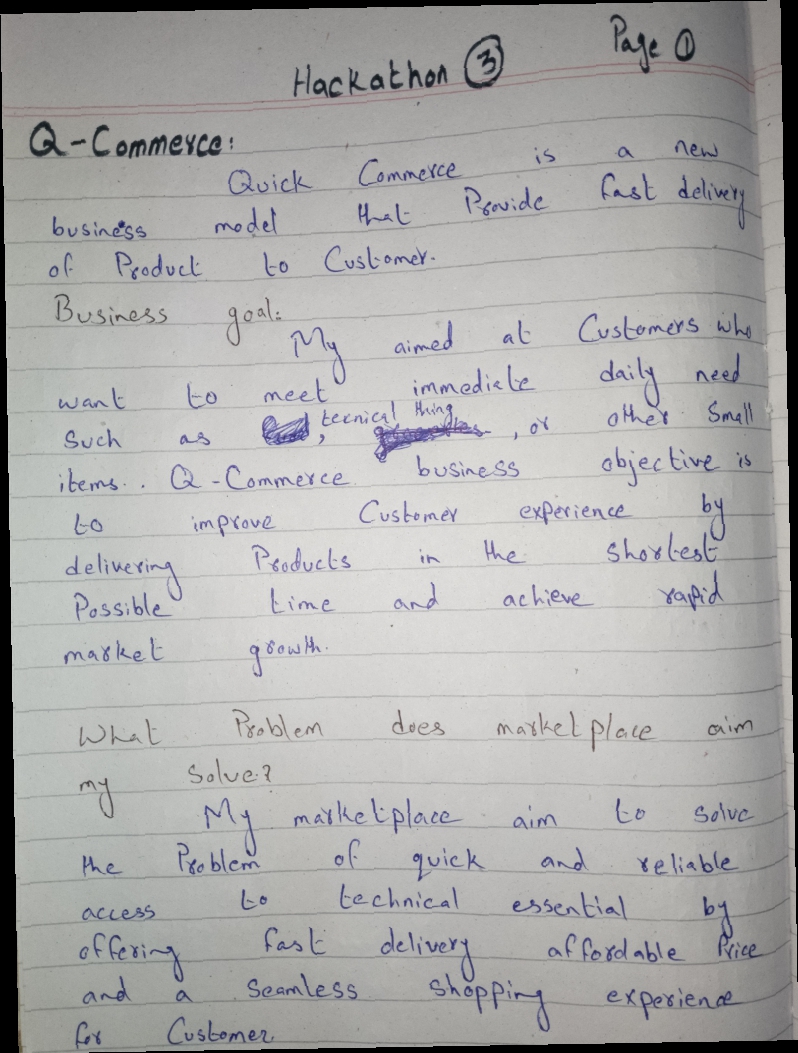 Page 1
Hackathon 3
Q-Commerce:
Quick Commerce is a new
business model that Provide fast delivery
of Product to Customer.
Business goal:
My aimed at Customers who
want to meet immediate daily need
Such as tecnical thing, or other Small
items.. Q-Commerce business objective is
to improve Customer experience by
delivering Products in the Shortest
Possible time and achieve rapid
market growth.
What Problem does marketplace aim
my Solve?
My marketplace aim to solve
the Problem of quick and reliable
access to technical essential by
offering fast delivery affordable Price
and a Seamless Shopping experience
for Customer